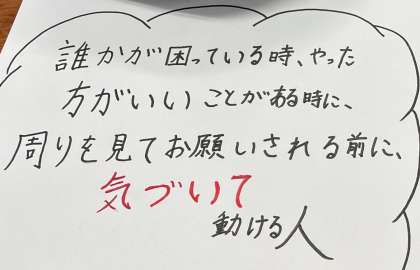 誰かが困っている時、やった
方がいいことがある時に、
周りを見てお願いされる前に、
気づいて
動ける人